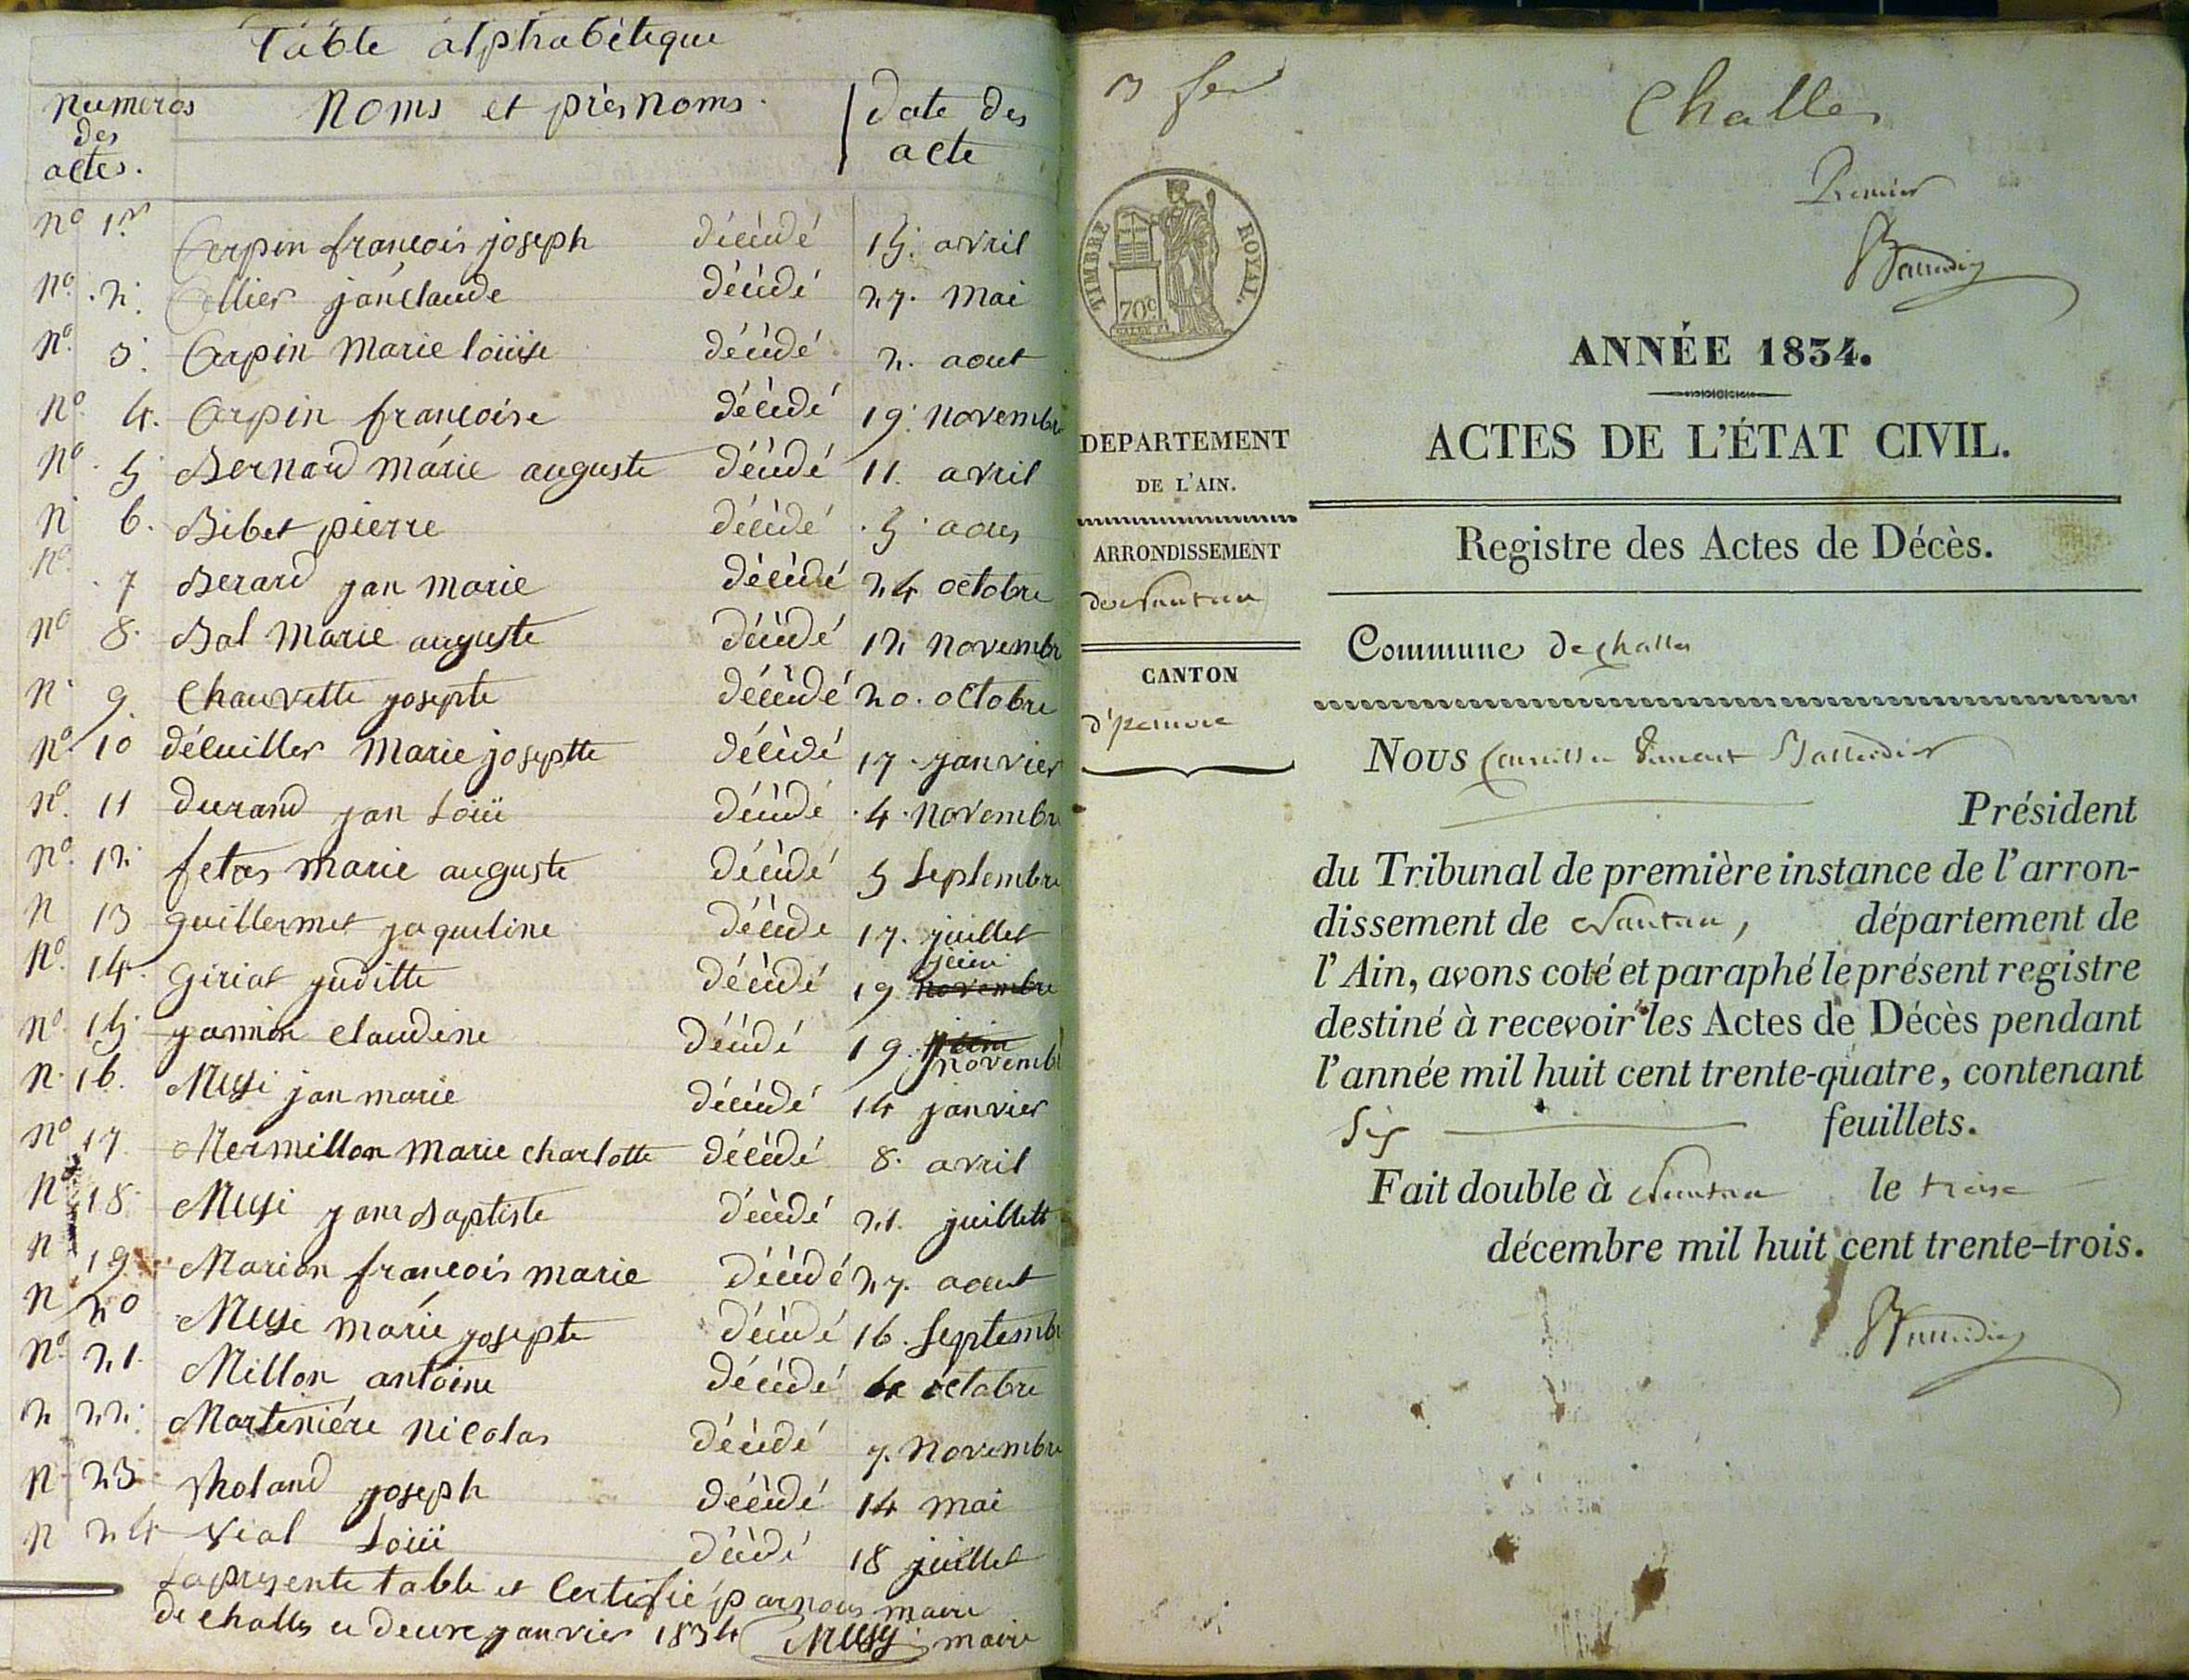 Table alphabétique
numeros des actes.
Noms et prèsnoms.
Date des acte
no 1er Arpin francois joseph décédé 15. avril
no. 2. Collier janclaude décédé 27. mai
no. 3. Arpin marie loüise décédé 2. aout
no. 4. Arpin francoise décédé 19. novembre
no. 5 Bernard márie auguste décédé 11. avril
n 6. Bibet pierre décédé 5 aous
no. 7 Berard jan marie décédé 24 octobre
no 8. Bal marie auguste décédé 12 novembr
n. 9. Chauvette josepte décédé 20. octobre
no. 10 déluiller marie joseptte décédé 17. janvier
no. 11 durand jan Loüi décédé 4. novembre
no. 12. fetas marie auguste décédé 5 septembre
n 13 guillermet jaqueline décédé 17. juillet
no. 14. giriat juditte décédé 19 novembre juin
no. 15. jannin claudine décédé 19. juin novemb
n. 16. Musi jan marie décédé 14 janvier
no 17. Mermillon marie charlotte décédé 8. avril
no 18. Musi jan Baptiste décédé 21. juillett
n 19. Marion francois marie décédé 27. aout
n 20 Musi márie josepte décédé 16. septemb
no. 21. Millon antoine décédé 4 octobre
n 22. Martiniére nicolas décédé 7. novembre
n. 23 Roland joseph décédé 14 mai
n 24 vial Loüi décédé 18 juillet
La presente table et Certifié par nous maire
de challes ce deuxe janvier 1834 Musy maire
Challes
Premier
TIMBRE ROYAL.
70c
ANNÉE 1834.
ACTES DE L'ÉTAT CIVIL.
DEPARTEMENT
DE L'AIN.
ARRONDISSEMENT
de Nantua
CANTON
d'
Registre des Actes de Décès.
Commune de challes
Nous
Président
du Tribunal de première instance de l'arron-
dissement de Nantua, département de
l'Ain, avons coté et paraphé le présent registre
destiné à recevoir les Actes de Décès pendant
l'année mil huit cent trente-quatre, contenant
six feuillets.
Fait double à Nantua le treize
décembre mil huit cent trente-trois.